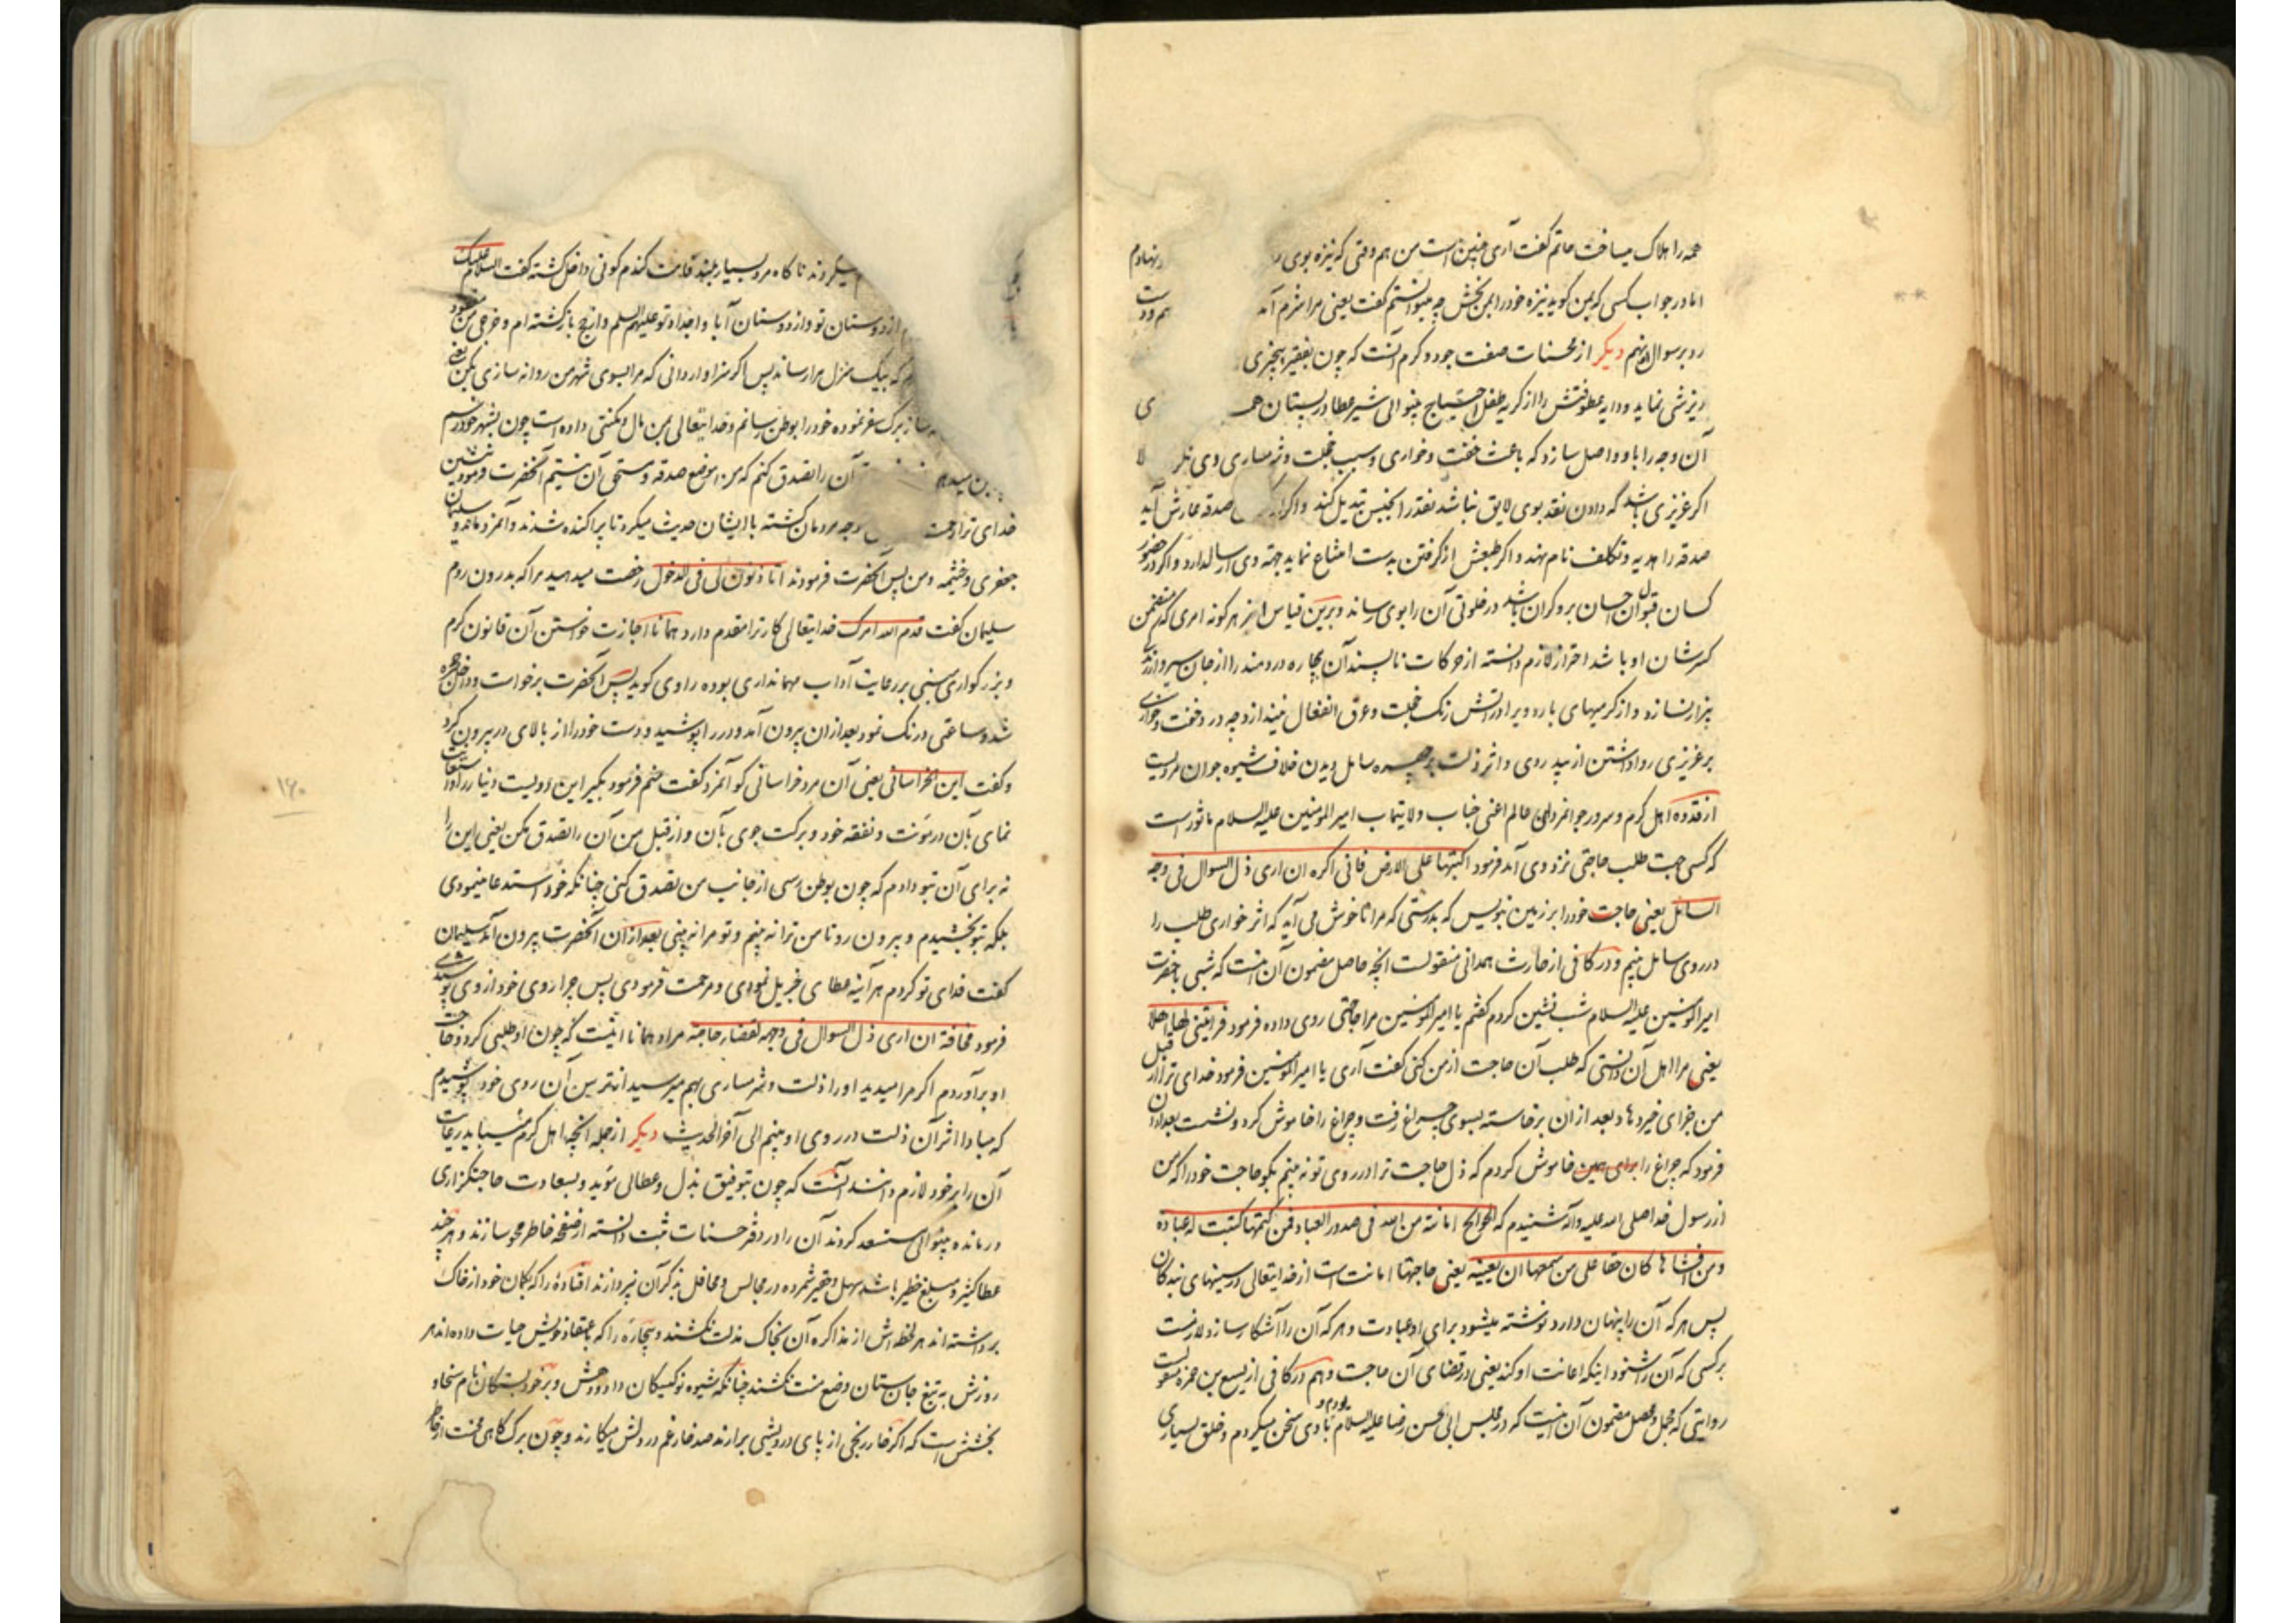 همه را هلاک میساخت حاتم گفت آری چنین است من هم وقتی که نیزه بوی
اما در جواب کسی که بمن گوید نیزه خود را بمن بخش چه میتوانستم گفت یعنی مرا شرم آمد
رد بر سوال او نهم دیگر از محسنات صفت جود و کرم آنست که چون بفقیر بیچیزی
ریزشی نماید و دایه عطوفتش را از گریه طفل احتیاج بینوائی شیر عطا در پستان
آن وجه را باو واصل سازد که باعث خفت و خواری و سبب خجلت و شرمساری وی
اگر عزیزی باشد که دادن نقد بوی لایق نباشد نقد را بجنس تبدیل کند و اگر از صدقه عارش آید
صدقه را هدیه و تکلف نام نهد و اگر طبعش از گرفتن بدست امتناع نماید جهة وی ارسالدارد و اگر در حضور
کسان قبول آن احسان برو گران باشد در خلوتی آن را بوی رساند و برین قیاس از هر گونه امری که متضمن
کسر شان او باشد احتراز لازم دانسته از حرکات ناپسند آن بیچاره دردمند را از جان سیر و از زندگی
بیزار نسازد و از گرمیهای بارد ویرا در آتش رنگ خجلت و عرق انفعال نیندازد چه در خفت و خواری
بر عزیزی روا داشتن از سپید روی و اثر ذلت بر چهره سایل دیدن خلاف شیوه جوان مردیست
از قدوه اهل کرم و سرور جوانمردان عالم اعنی جناب ولایتماب امیر المومنین علیه السلام ماثور است
که کسی جهت طلب حاجتی نزد وی آمد فرمود اکتبها علی الارض فانی اکره ان اری ذل السوال فی وجه
السائل یعنی حاجت خود را بر زمین بنویس که بدرستی که مرا ناخوش می آید که اثر خواری طلب را
در روی سایل بینم و در کافی از حارث همدانی منقولست انچه حاصل مضمون آن اینست که شبی با حضرت
امیر المومنین علیه السلام شب نشین کردم گفتم یا امیر المومنین مرا حاجتی روی داده فرمود فرایتنی لها اهلا
یعنی مرا اهل آن دانستی که طلب آن حاجت از من کنی گفت آری یا امیر المومنین فرمود خدای ترا از قبل
من جزای خیر دهاد بعد از ان برخاسته بسوی چراغ رفت و چراغ را خاموش کرد و نشست بعد از ان
فرمود که چراغ را برای همین خاموش کردم که ذل حاجت ترا در روی تو نه بینم بگو حاجت خود را که من
از رسول خدا صلی الله علیه وآله شنیدم که الحوائج امانة من الله فی صدور العباد فمن کتمها کتبت له عبادة
و من افشاها کان حقا علی من سمعها ان یعینه یعنی حاجتها امانت است از خدایتعالی در سینهای بندگان
پس هر که آن را پنهان دارد نوشته میشود برای او عبادت و هر که آن را آشکار سازد لازمست
بر کسی که آن را شنود اینکه اعانت او کند یعنی در قضای آن حاجت و هم در کافی از یسع بن حمزه منقولست
روایتی که مجمل و محصل مضمون آن اینست که در مجلس ابی الحسن رضا علیه السلام بودم و با وی سخن میکردم و خلق بسیاری
میکردند ناگاه مرد بسیار بلند قامت گندم گونی داخل گشته گفت السلام علیک
از دوستان تو و از دوستان آبا و اجداد تو علیهم السلم و از حج باز گشته ام و خرجی من مفقود
که بیک منزل مرا رساند پس اگر سزاوار دانی که مرا بسوی شهر من روانه سازی بکن یعنی
ساز برگ سفر نموده خود را بوطن رسانم و خدایتعالی بمن مال و مکنتی داده است چون بشهر خود رسم
آن را تصدق کنم که من موضع صدقه و مستحق آن نیستم آنحضرت فرمود بنشین
خدای ترا رحمت وجه مردمان گشته با ایشان حدیث میکرد تا پراکنده شدند و آنمرد ماند و سلیمان
جعفری و خثیمه و من پس آنحضرت فرمودند اتاذنون لی فی الدخول رخصت میدهید مرا که بدرون روم
سلیمان گفت قدم الله امرک خدایتعالی کار ترا مقدم دارد همانا اجازت خواستن آن قانون کرم
و بزرگواری مبنی بر رعایت آداب مهمانداری بوده راوی گوید پس آنحضرت برخواست و داخل حجره
شد و ساعتی درنگ نمود بعد از ان بیرون آمد و در را پوشید و دست خود را از بالای در بیرون کرد
و گفت این الخراسانی یعنی آن مرد خراسانی کو آنمرد گفت منم فرمود بگیر این دویست دینار را و استعانت
نمای بآن در مؤنت و نفقه خود و برکت جوی بآن و از قبل من آن را تصدق مکن یعنی این را
نه برای آن بتو دادم که چون بوطن رسی از جانب من تصدق کنی چنانکه خود استدعا مینمودی
بلکه بتو بخشیدم و بیرون رو تا من ترا نه بینم و تو مرا نه بینی بعد از ان آنحضرت بیرون آمد سلیمان
گفت فدای تو گردم هر آینه عطای جزیل نمودی و مرحمت فرمودی پس چرا روی خود از وی پوشیدی
فرمود مخافة ان اری ذل السوال فی وجهه لقضاء حاجته مراد همانا اینست که چون او طلبی کرد و حاجت
او برآوردم اگر مرا میدید او را ذلت و شرمساری بهم میرسید ازینتر من آن روی خود پوشیدم
که مبادا اثر آن ذلت در روی او بینم الی آخر الحدیث دیگر از جمله انچه اهل کرم میباید رعایت
آن را بر خود لازم دانند آنست که چون بتوفیق بذل و عطائی مؤید و بسعادت حاجتگزاری
درمانده بینوائی مستسعد گردند آن را در دفتر حسنات ثبت دانسته از صفحه خاطر محو سازند و هر چند
عطا کثیر و مبلغ خطیر باشد سهل و حقیر شمرده در مجالس و محافل بذکر آن نپردازند افتاده را که بگمان خود از خاک
برداشته اند هر لحظه اش از مذاکره آن بخاک مذلت نکشند و بیچاره را که باعتقاد خویش حیات داده اند هر
روزش به تیغ جان ستان وضع منت نکشند چنانکه شیوه نوکیسگان داد و دهش و بر خود بستگان نام سخا و
بخشش است که اگر خار رنجی از پای درویشی برارند صد خار غم در دلش میکارند و چون برگ کاهی محنت از خاطر
۱۶۰